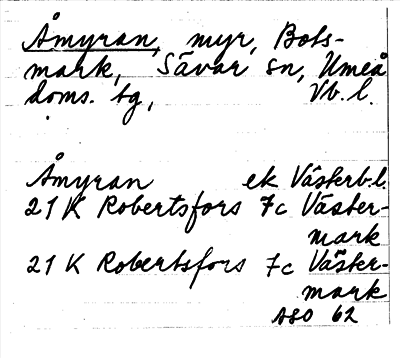 Åmyran, myr, Bots-
mark, Sävar sn, Umeå
doms. tg, Vb. l.
Åmyran ek Västerb. l.
21 K Robertsfors 7c Väster-
mark
21 K Robertsfors 7c Väster-
mark
ASO 62